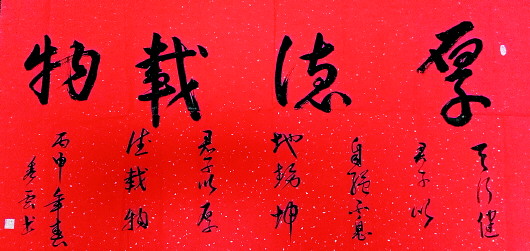 厚德載物
天行健
君子以
自強不息
地勢坤
君子以厚
德載物
丙申年春
书